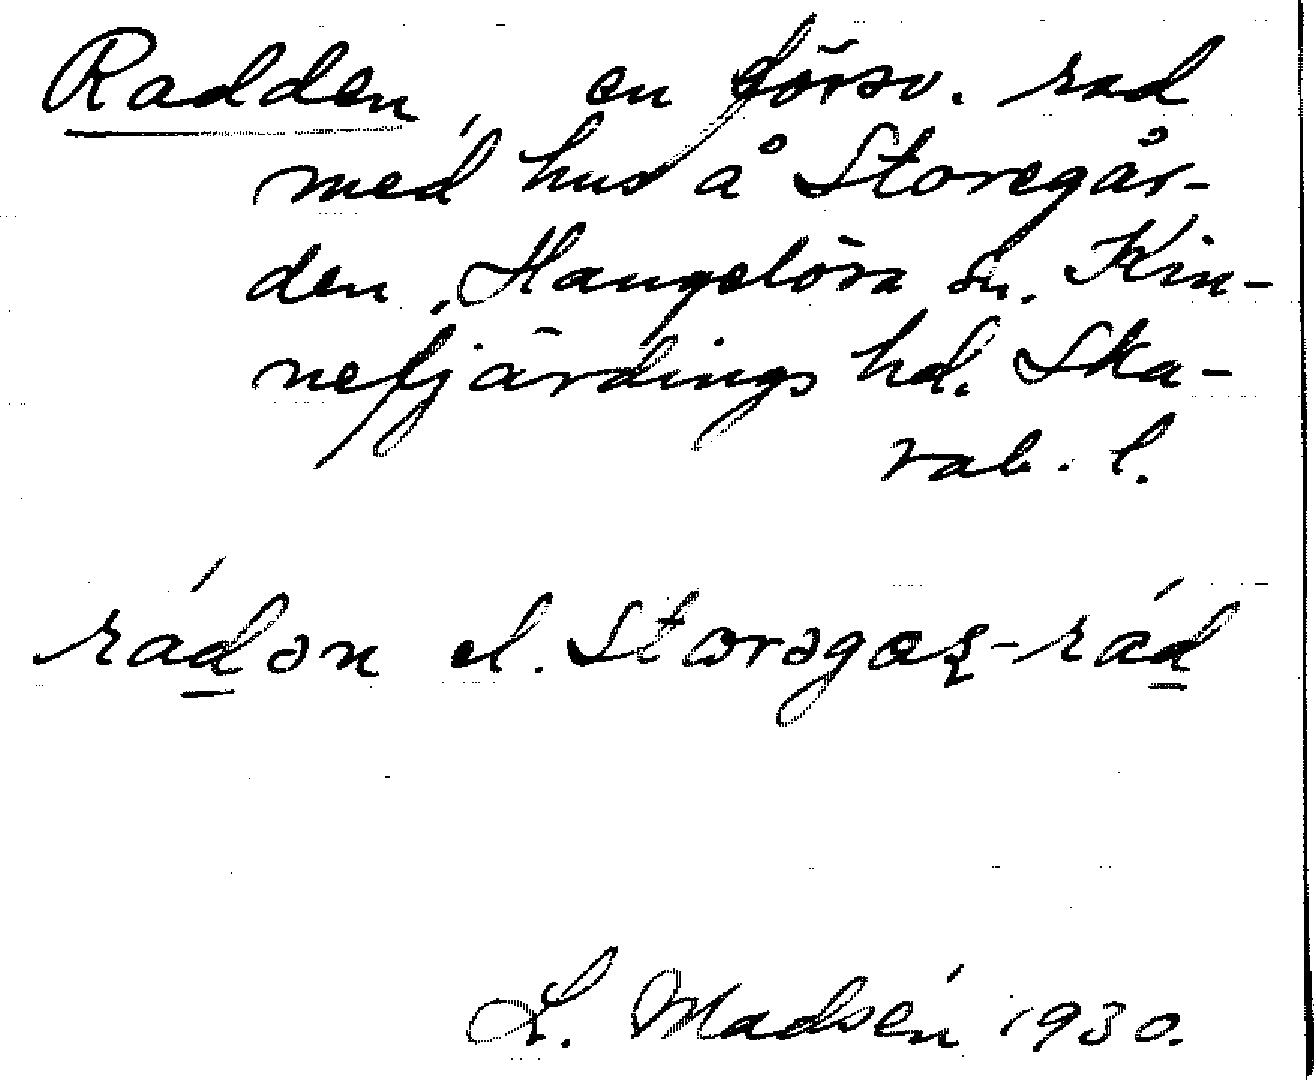 Radden, en försv. rad
med hus å Storegår-
den, Hangelösa sn. Kin-
nefjärdings hd. Ska-
rab. l.
rádən el. Storəgaʀ-rád
L. Madsén 1930.